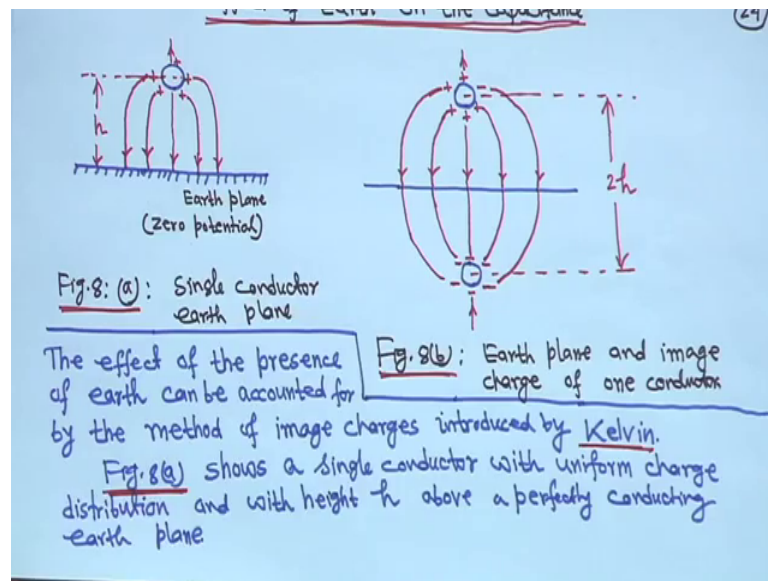 of Earth on the Capacitance
24
h
Earth plane
(Zero potential)
2h
Fig. 8: (a): Single conductor
earth plane
Fig. 8(b): Earth plane and image
charge of one conductor
The effect of the presence
of earth can be accounted for
by the method of image charges introduced by Kelvin.
Fig. 8(a) shows a single conductor with uniform charge
distribution and with height h above a perfectly conducting
earth plane